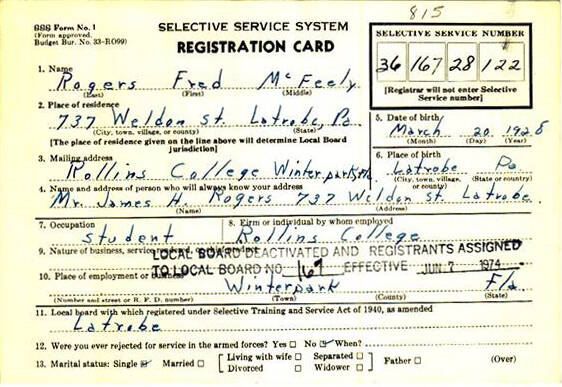 815
SSS Form No. 1
(Form approved.
Budget Bur. No. 33-RO99)
SELECTIVE SERVICE SYSTEM
REGISTRATION CARD
SELECTIVE SERVICE NUMBER
36 167 28 122
[Registrar will not enter Selective
Service number]
1. Name
Rogers Fred McFeely
(Last) (First) (Middle)
2. Place of residence
737 Weldon St. Latrobe, Pa
(City, town, village, or county) (State)
[The place of residence given on the line above will determine Local Board
jurisdiction]
3. Mailing address
Rollins College Winterpark, Fla
4. Name and address of person who will always know your address
Mr. James H. Rogers 737 Weldon St. Latrobe
(Name) (Address)
5. Date of birth
March 20 1928
(Month) (Day) (Year)
6. Place of birth
Latrobe Pa
(City, town, village, or county) (State or country)
7. Occupation
Student
8. Firm or individual by whom employed
Rollins College
9. Nature of business, service
LOCAL BOARD DEACTIVATED AND REGISTRANTS ASSIGNED
TO LOCAL BOARD NO. 167 EFFECTIVE JUN 7 1974
10. Place of employment or business
Winterpark Fla
(Number and street or R. F. D. number) (Town) (County) (State)
11. Local board with which registered under Selective Training and Service Act of 1940, as amended
Latrobe
12. Were you ever rejected for service in the armed forces? Yes ☐ No ☑ When?
13. Marital status: Single ☑ Married ☐ [Living with wife ☐ Separated ☐
Divorced ☐ Widower ☐] Father ☐ (Over)